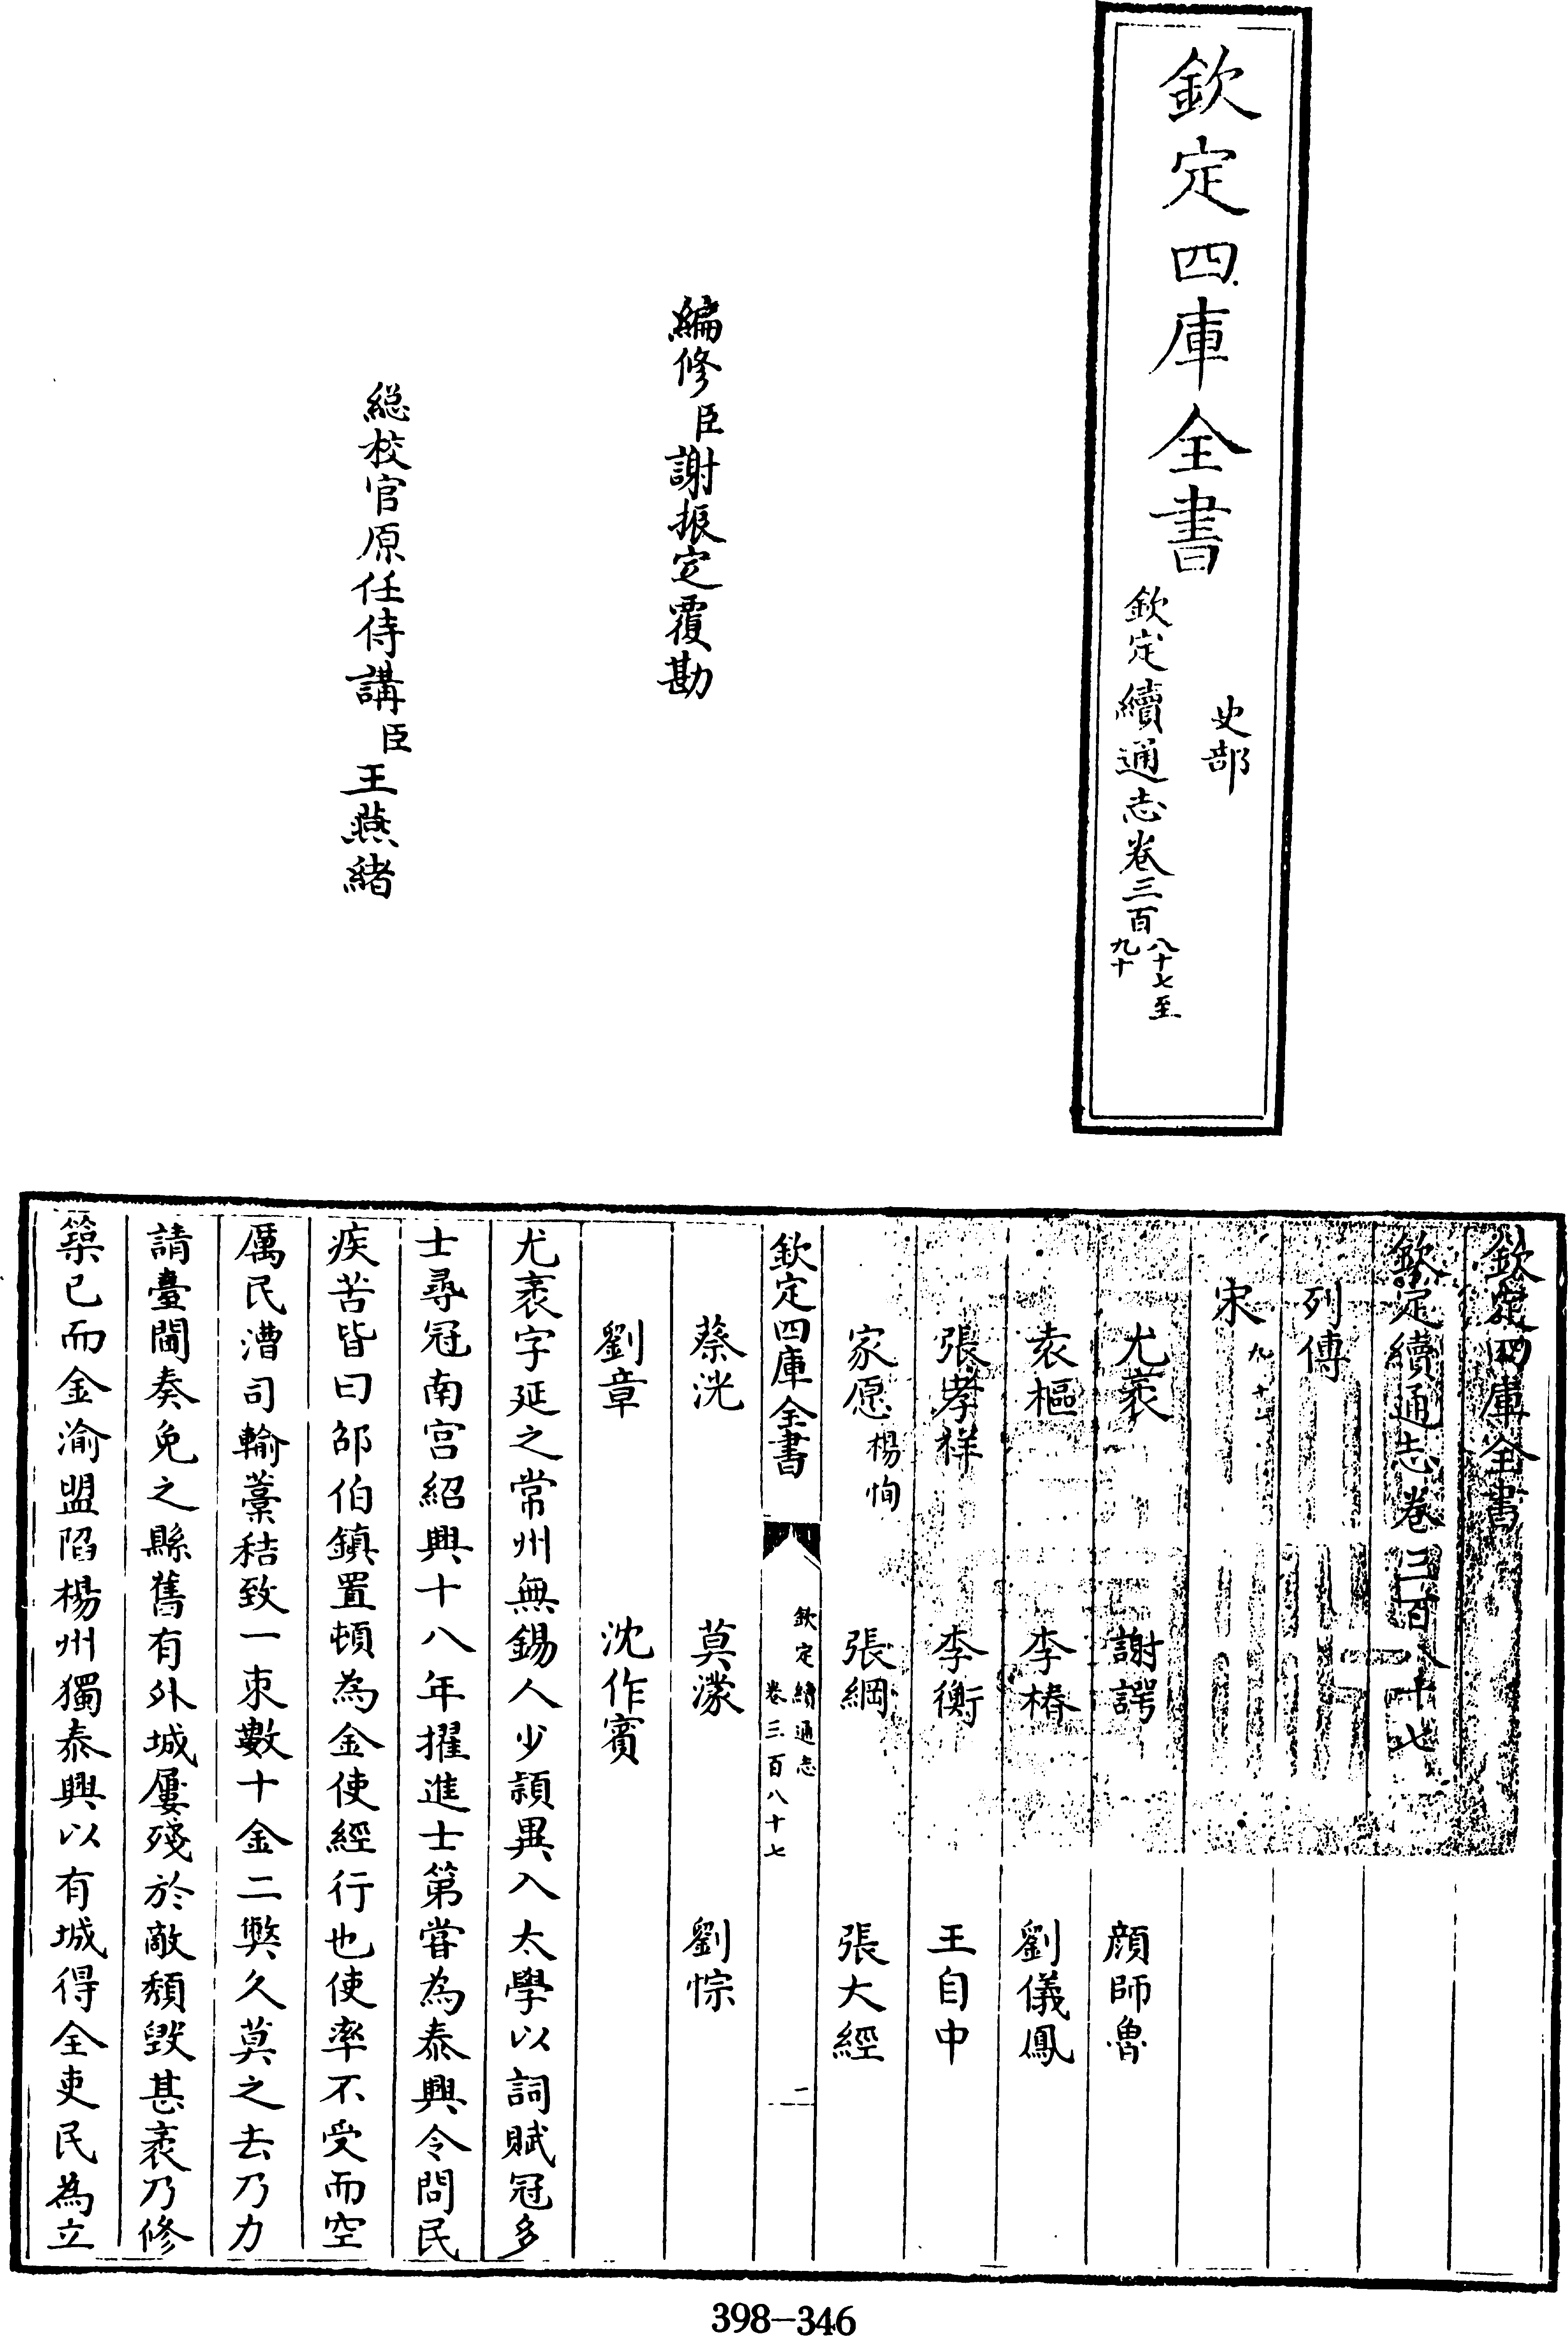 欽定四庫全書
史部
欽定續通志卷三百八十七至九十
編修臣謝振定覆勘
總校官原任侍講臣王燕緒
欽定四庫全書
欽定續通志卷三百八十七
列傳
宋九十
尤袤 謝諤 顔師魯
袁樞 李椿 劉儀鳳
張孝祥 李衡 王自中
家愿楊恂 張綱 張大經
欽定四庫全書
欽定續通志
卷三百八十七
一
蔡洸 莫濛 劉悰
劉章 沈作賓
尤袤字延之常州無錫人少頴異入太學以詞賦冠多
士尋冠南宫紹興十八年擢進士第嘗為泰興令問民
疾苦皆曰邵伯鎮置頓為金使經行也使率不受而空
厲民漕司輸藁秸致一束數十金二獘久莫之去乃力
請臺閫奏免之縣舊有外城屢殘於敵頽毁甚袤乃修
築已而金渝盟陷楊州獨泰興以有城得全吏民為立
398-346